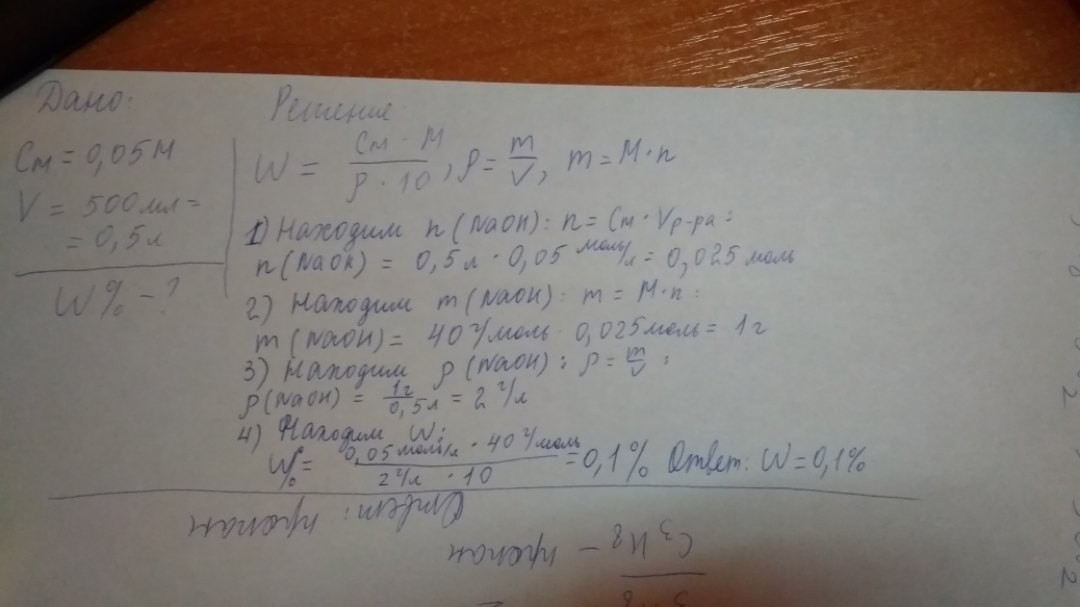 Дано:
Cм = 0,05 М
V = 500 мл =
= 0,5 л
W% - ?
Решение:
W = Cм · M / ρ · 10, ρ = m/V, m = M · n
1) Находим n (NaOH): n = Cм · Vр-ра:
n (NaOH) = 0,5 л · 0,05 моль/л = 0,025 моль
2) Находим m (NaOH): m = M·n:
m (NaOH) = 40 г/моль · 0,025 моль = 1 г
3) Находим ρ (NaOH): ρ = m/V:
ρ (NaOH) = 1г/0,5л = 2 г/л
4) Находим W:
W% = 0,05 моль/л · 40 г/моль / 2 г/л · 10 = 0,1% Ответ: W = 0,1%
C3H8 - пропан
Ответ: пропан